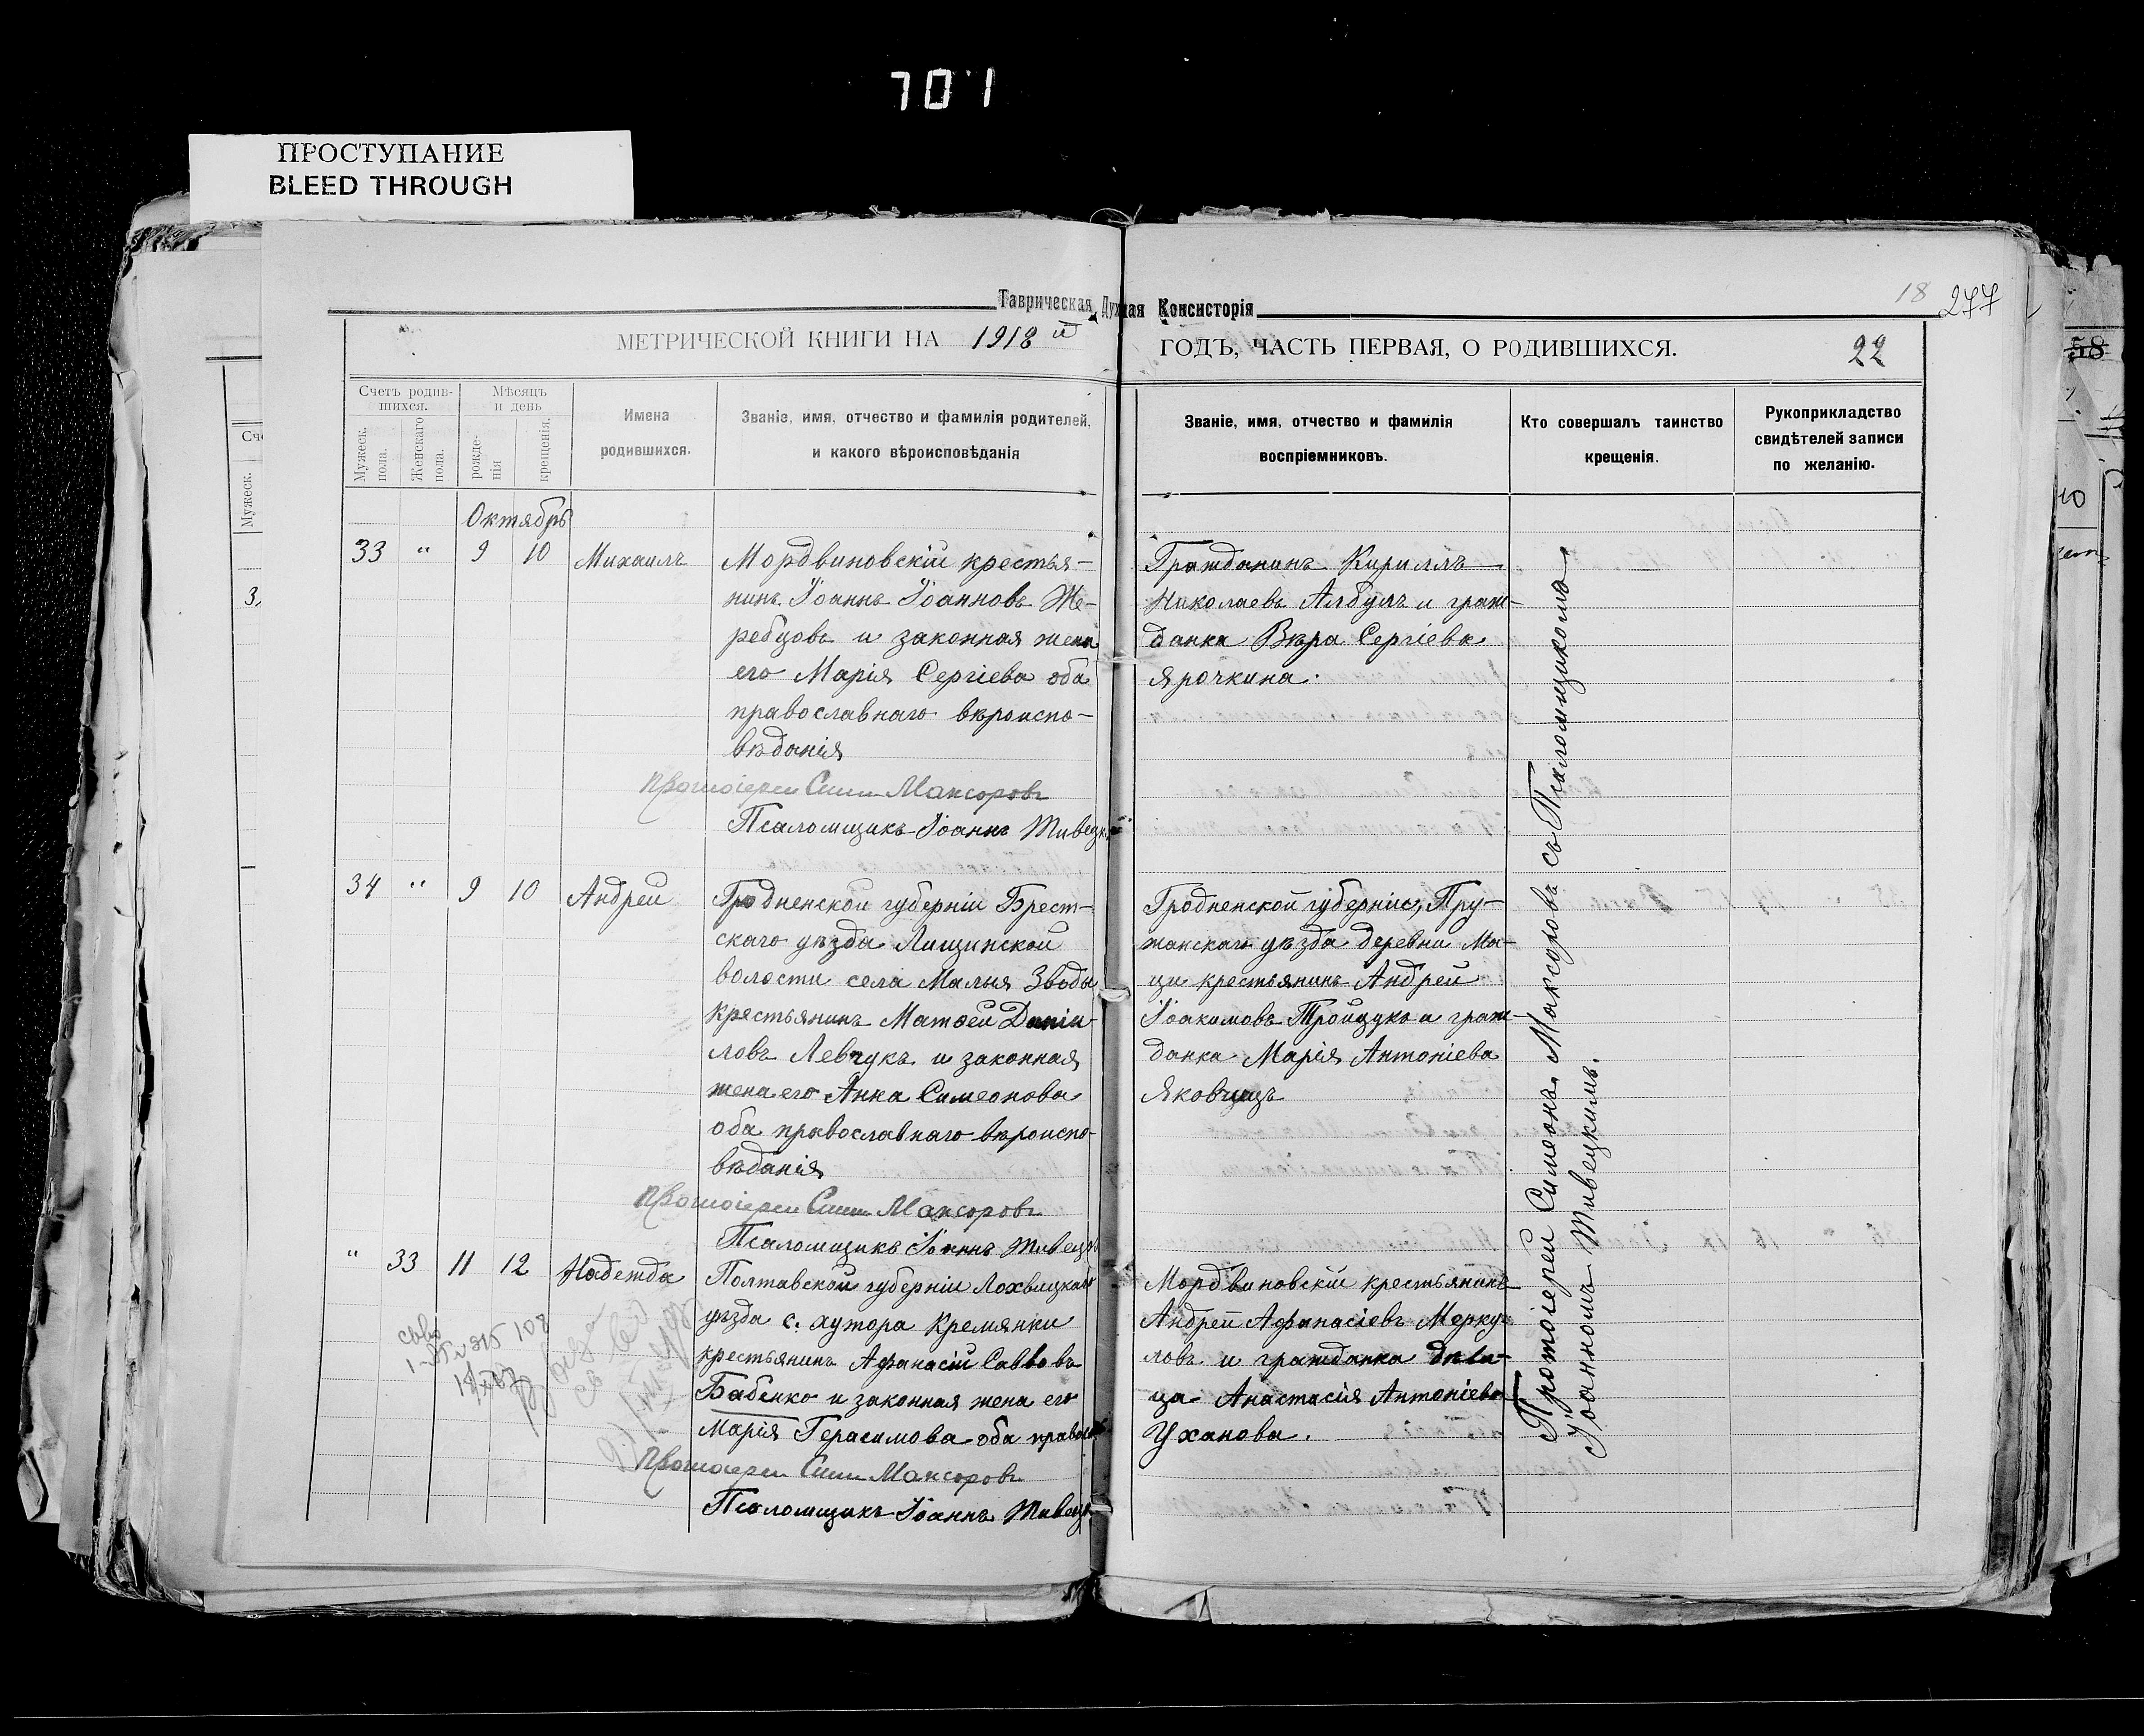 701
ПРОСТУПАНИЕ
BLEED THROUGH
Таврическая Духная Консисторія
18
277
58
МЕТРИЧЕСКОЙ КНИГИ НА 1918 й
ГОДЪ, ЧАСТЬ ПЕРВАЯ, О РОДИВШИХСЯ.
22
Счетъ родив-
шихся.
Мужеск.
пола.
Женскаго
пола.
Мѣсяцъ
и день
рожде-
нія
крещенія.
Имена
родившихся.
Званіе, имя, отчество и фамилія родителей,
и какого вѣроисповѣданія
Званіе, имя, отчество и фамилія
воспріемниковъ.
Кто совершалъ таинство
крещенія.
Рукоприкладство
свидѣтелей записи
по желанію.
Октябрь
33 " 9 10 Михаилъ
Мордвиновскій крестья-
нинъ Іоаннъ Іоанновъ Же-
ребцовъ и законная жена
его Марія Сергіева оба
православнаго вѣроиспо-
вѣданія
Протоіерей Симеонъ Максоровъ
Псаломщикъ Іоаннъ Живецк
Гражданинъ Кириллъ
Николаевъ Албулъ и граж-
данка Вѣра Сергіева
Ярочкина.
34 " 9 10 Андрей
Гродненской губерніи Брест-
скаго уѣзда Лищинской
волости села Малыя Зводы
крестьянинъ Матѳей Даніи-
ловъ Левчукъ и законная
жена его Анна Симеонова
оба православнаго вѣроиспо-
вѣданія
Протоіерей Симеонъ Максоровъ
Псаломщикъ Іоаннъ Живецк
Гродненской губерніи, Пру-
жанскаго уѣзда деревни Ма-
ци крестьянинъ Андрей
Іоакимовъ Тройцукъ и граж-
данка Марія Антоніева
Яковчицъ
" 33 11 12 Надежда
Полтавской губерніи Лохвицкаго
уѣзда с. хутора Кремянки
крестьянинъ Афанасій Саввовъ
Бабенко и законная жена его
Марія Герасимова оба правосл
Протоіерей Симеонъ Максоровъ
Псаломщикъ Іоаннъ Живецк
Мордвиновскій крестьянинъ
Андрей Афанасіевъ Мерку-
ловъ и гражданка дѣви-
ца Анастасія Антоніева
Уханова.
Протоіерей Симеонъ Максоровъ съ Псаломщикомъ
Іоанномъ Живецкимъ.